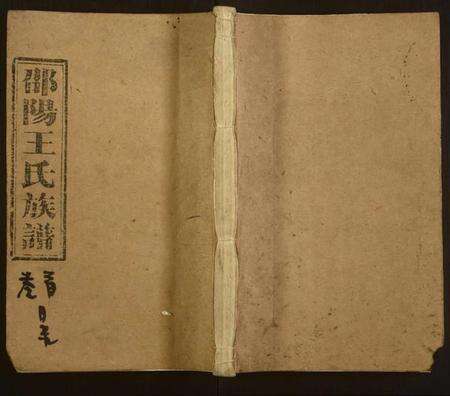 邵陽王氏族譜
首
卷